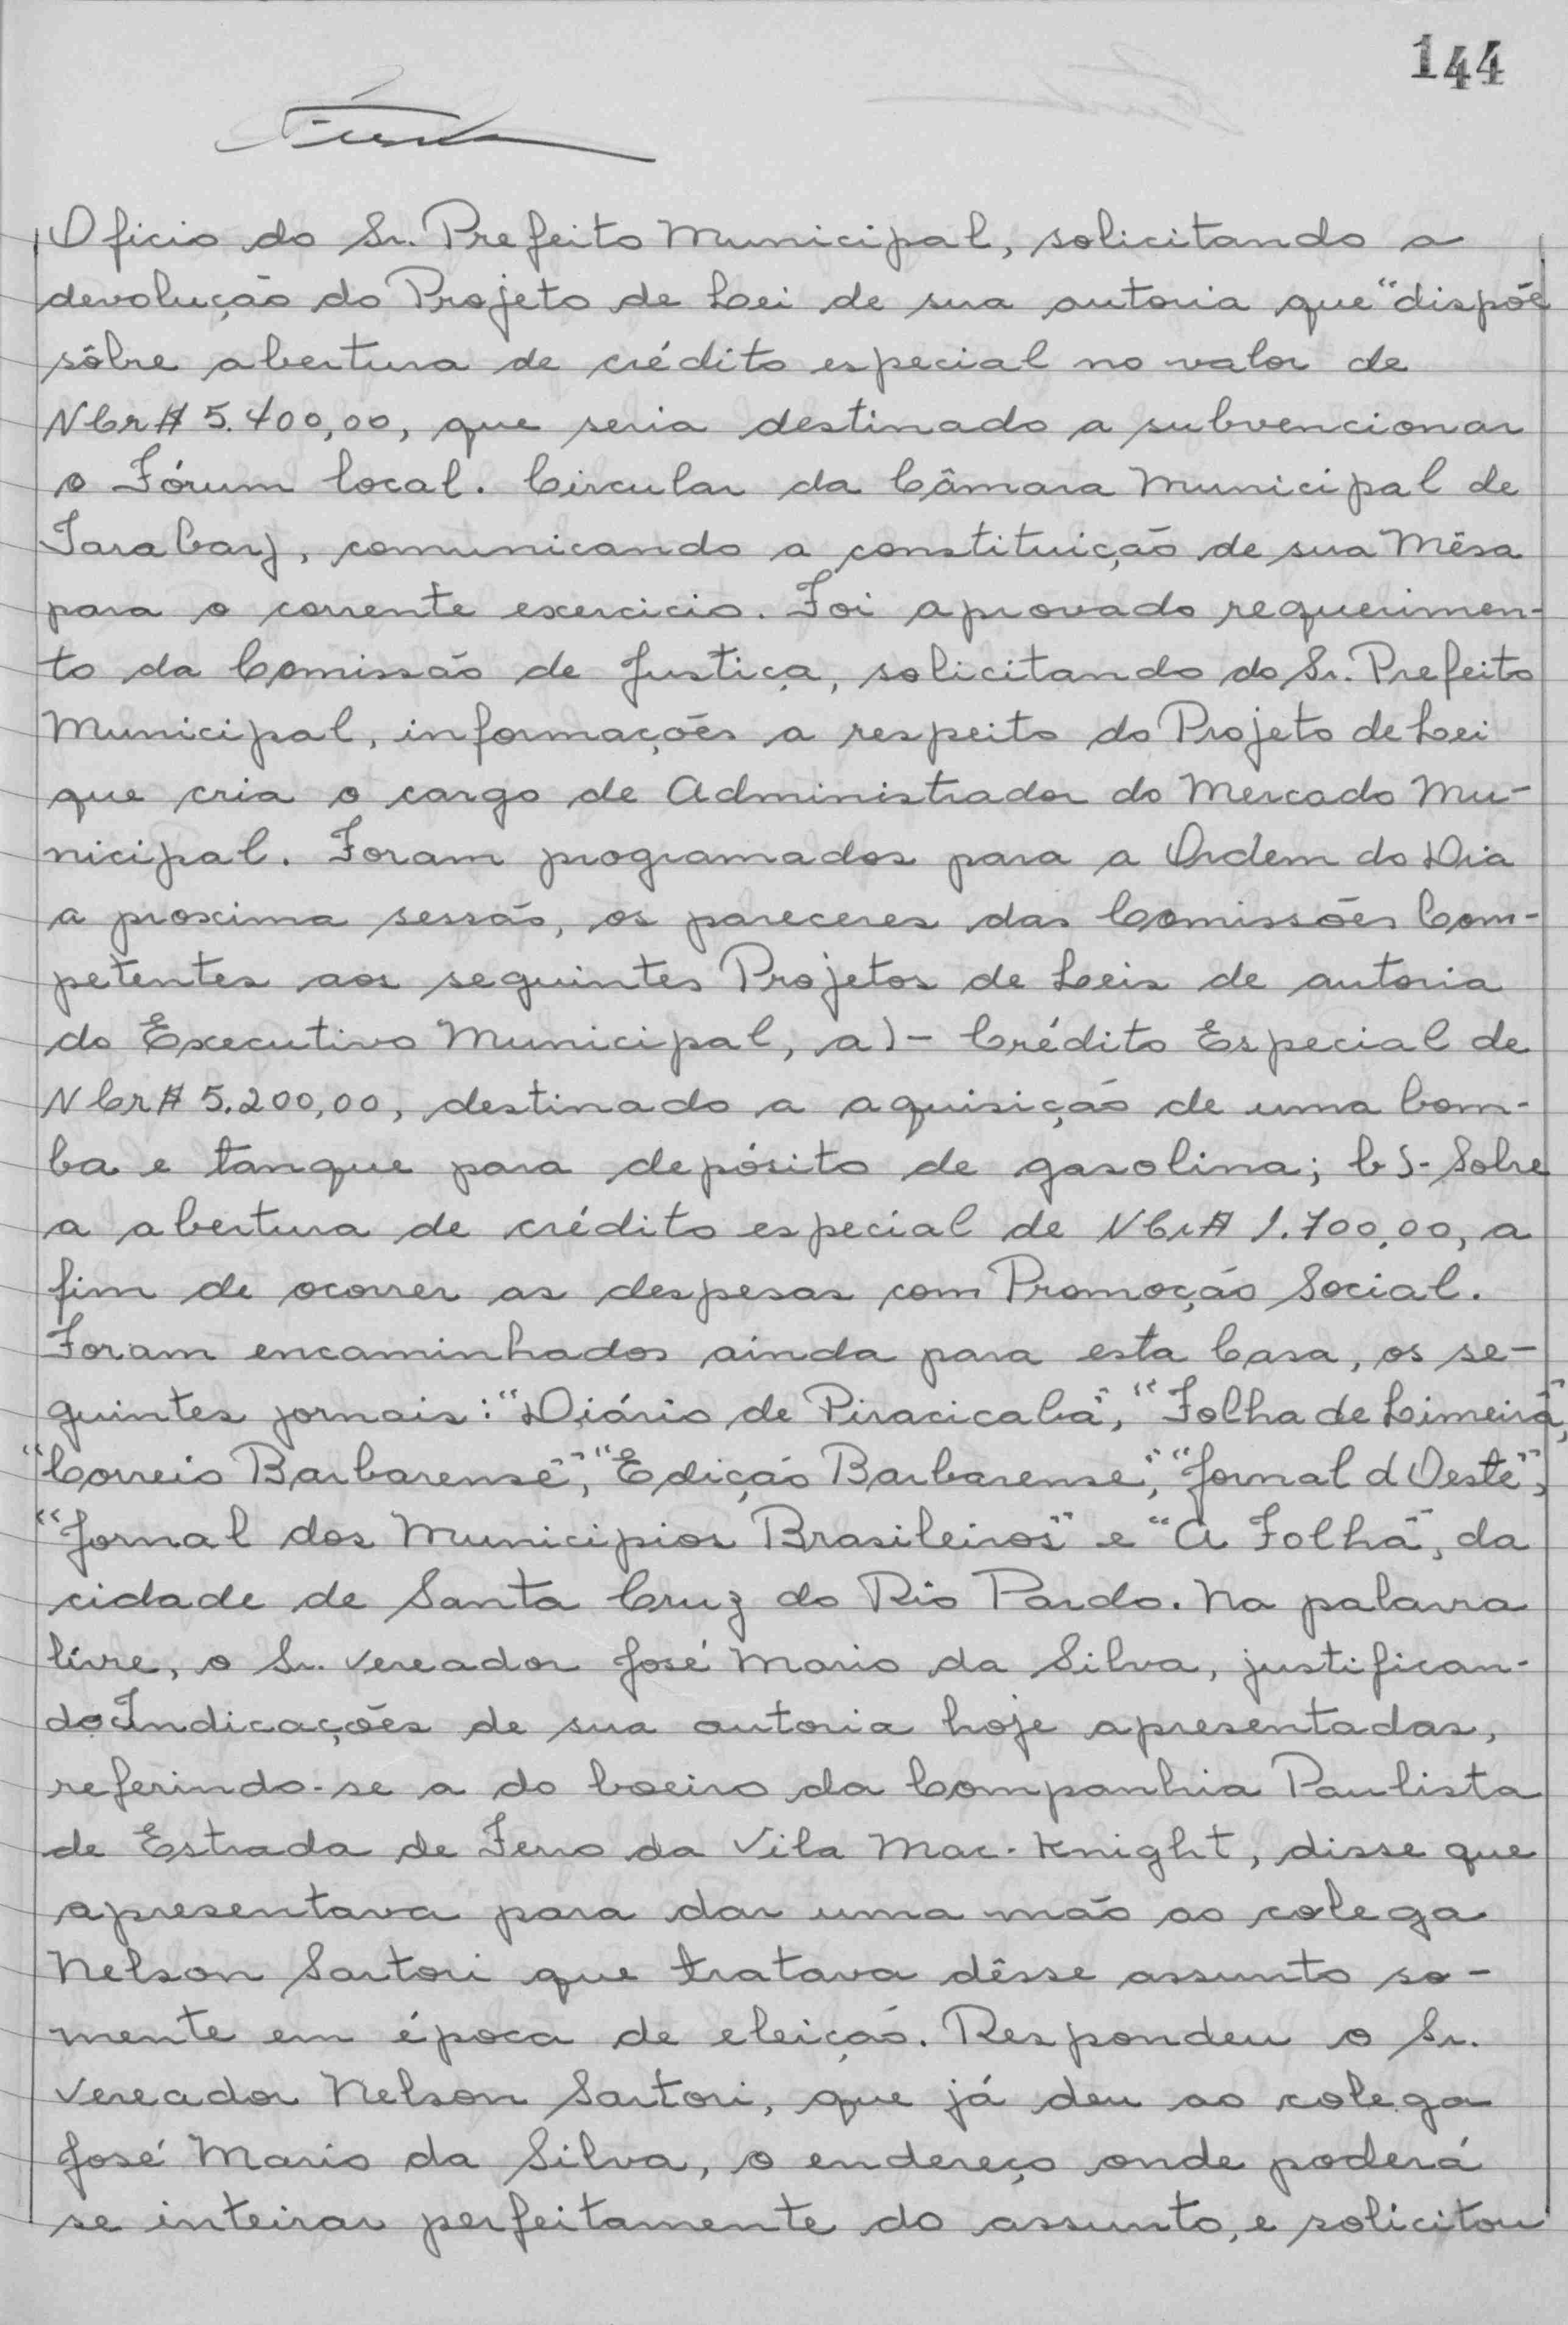 144
Oficio do Sr. Prefeito Municipal, solicitando a
devolução do Projeto de Lei de sua autoria que "dispõe
sôbre abertura de crédito especial no valor de
NCr$ 5.400,00, que seria destinado a subvencionar
o Fórum local. Circular da Câmara Municipal de
Tarabay, comunicando a constituição de sua Mêsa
para o corrente exercicio. Foi aprovado requerimen-
to da Comissão de Justiça, solicitando do Sr. Prefeito
Municipal, informações a respeito do Projeto de Lei
que cria o cargo de Administrador do Mercado Mu-
nicipal. Foram programados para a Ordem do Dia
a proxima sessão, os pareceres das Comissões Com-
petentes aos seguintes Projetos de Leis de autoria
do Executivo Municipal, a)- Crédito Especial de
NCr$ 5.200,00, destinado a aquisição de uma bom-
ba e tanque para depósito de gasolina; b)- Sobre
a abertura de crédito especial de NCr$ 1.700,00, a
fim de ocorrer as despesas com Promoção Social.
Foram encaminhados ainda para esta Casa, os se-
guintes jornais: "Diário de Piracicaba", "Folha de Limeira",
"Correio Barbarense", "Edição Barbarense", "Jornal d Oeste",
"Jornal dos Municipios Brasileiros" e "A Folha", da
cidade de Santa Cruz do Rio Pardo. Na palavra
livre, o Sr. Vereador José Mario da Silva, justifican-
do Indicações de sua autoria hoje apresentadas,
referindo-se a do boeiro da Companhia Paulista
de Estrada de Ferro da Vila Mac-Knight, disse que
apresentava para dar uma mão ao colega
Nelson Sartori que tratava dêsse assunto so-
mente em época de eleição. Respondeu o Sr.
Vereador Nelson Sartori, que já deu ao colega
José Mario da Silva, o endereço onde poderá
se inteirar perfeitamente do assunto, e solicitou